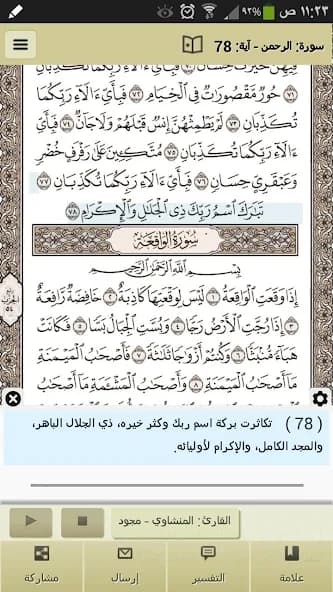 ٩٢% ١١:٢٣ ص
سورة: الرحمن - آية: 78
فِيهِنَّ خَيْرَٰتٌ حِسَانٌ ﴿٧٠﴾ فَبِأَيِّ ءَالَآءِ رَبِّكُمَا تُكَذِّبَانِ
﴿٧١﴾ حُورٌ مَّقْصُورَٰتٌ فِي ٱلْخِيَامِ ﴿٧٢﴾ فَبِأَيِّ ءَالَآءِ رَبِّكُمَا
تُكَذِّبَانِ ﴿٧٣﴾ لَمْ يَطْمِثْهُنَّ إِنسٌ قَبْلَهُمْ وَلَا جَآنٌّ ﴿٧٤﴾ فَبِأَيِّ ءَالَآءِ
رَبِّكُمَا تُكَذِّبَانِ ﴿٧٥﴾ مُتَّكِـِٔينَ عَلَىٰ رَفْرَفٍ خُضْرٍ
وَعَبْقَرِيٍّ حِسَانٍ ﴿٧٦﴾ فَبِأَيِّ ءَالَآءِ رَبِّكُمَا تُكَذِّبَانِ ﴿٧٧﴾
تَبَٰرَكَ ٱسْمُ رَبِّكَ ذِي ٱلْجَلَٰلِ وَٱلْإِكْرَامِ ﴿٧٨﴾
سُورَةُ الوَاقِعَةِ
بِسْمِ ٱللَّهِ ٱلرَّحْمَٰنِ ٱلرَّحِيمِ
إِذَا وَقَعَتِ ٱلْوَاقِعَةُ ﴿١﴾ لَيْسَ لِوَقْعَتِهَا كَاذِبَةٌ ﴿٢﴾ خَافِضَةٌ رَّافِعَةٌ
﴿٣﴾ إِذَا رُجَّتِ ٱلْأَرْضُ رَجًّا ﴿٤﴾ وَبُسَّتِ ٱلْجِبَالُ بَسًّا ﴿٥﴾ فَكَانَتْ
هَبَآءً مُّنۢبَثًّا ﴿٦﴾ وَكُنتُمْ أَزْوَٰجًا ثَلَٰثَةً ﴿٧﴾ فَأَصْحَٰبُ ٱلْمَيْمَنَةِ
مَآ أَصْحَٰبُ ٱلْمَيْمَنَةِ ﴿٨﴾ وَأَصْحَٰبُ ٱلْمَشْـَٔمَةِ مَآ أَصْحَٰبُ
الحزب
٥٤
(78) تكاثرت بركة اسم ربك وكثر خيره، ذي الجلال الباهر،
والمجد الكامل، والإكرام لأوليائه.
القارئ: المنشاوي - مجود
علامة
التفسير
إرسال
مشاركة